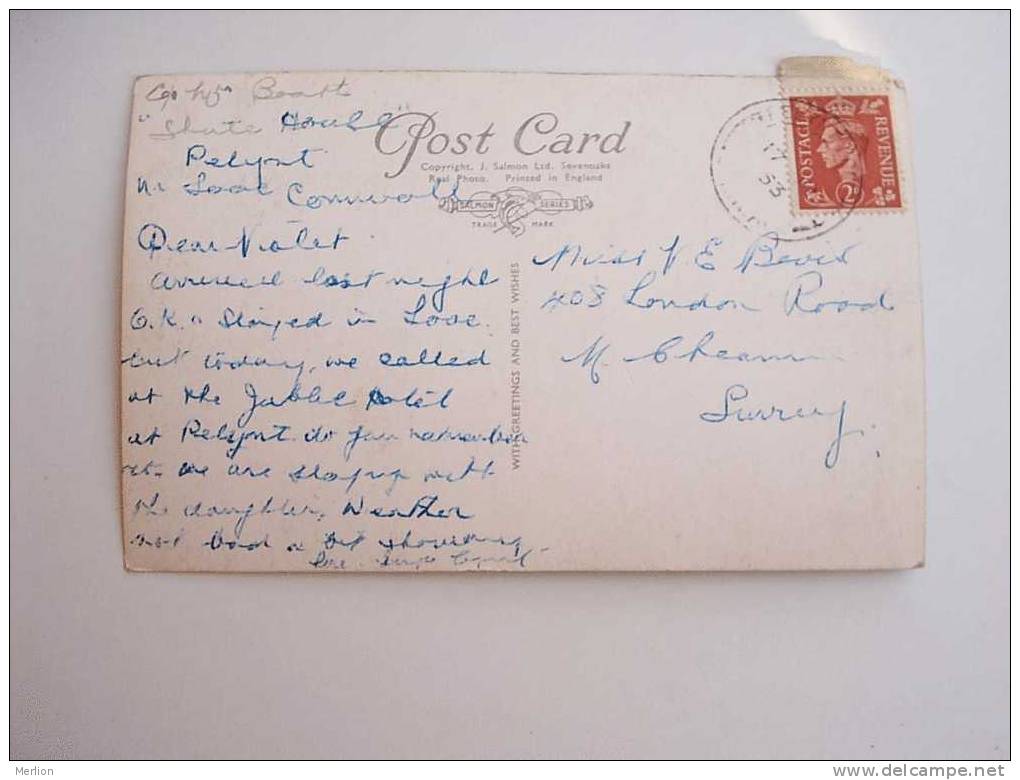 C/o Mrs Boatt
"Shute House"
Pelynt
Nr Looe Cornwall
Post Card
Copyright. J. Salmon Ltd. Sevenoaks
Real Photo. Printed in England
SALMON SERIES
TRADE MARK
POSTAGE REVENUE
2D
17
53
Dear Violet.
arrived last night
O.K. Stayed in Looe.
but today, we called
at the Jubilee Hotel
at Pelynt. do you remember
it. we are staying with
the daughter, Weather
not bad a bit showery
WITH GREETINGS AND BEST WISHES
Miss V E Bevis
408 London Road
N. Cheam
Surrey.
Merlion
delcampe.net